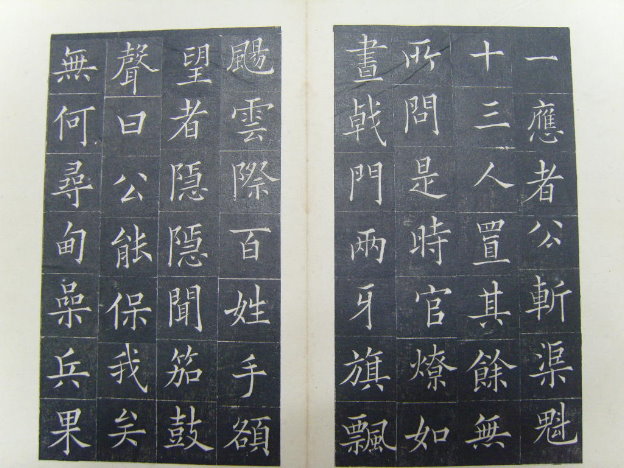 一應者公斬渠魁
十三人置其餘無
所問是時官燎如
晝戟門兩牙旗飄
颺雲際百姓手額
望者隱隱聞笳鼓
聲曰公能保我矣
無何尋甸喿兵果